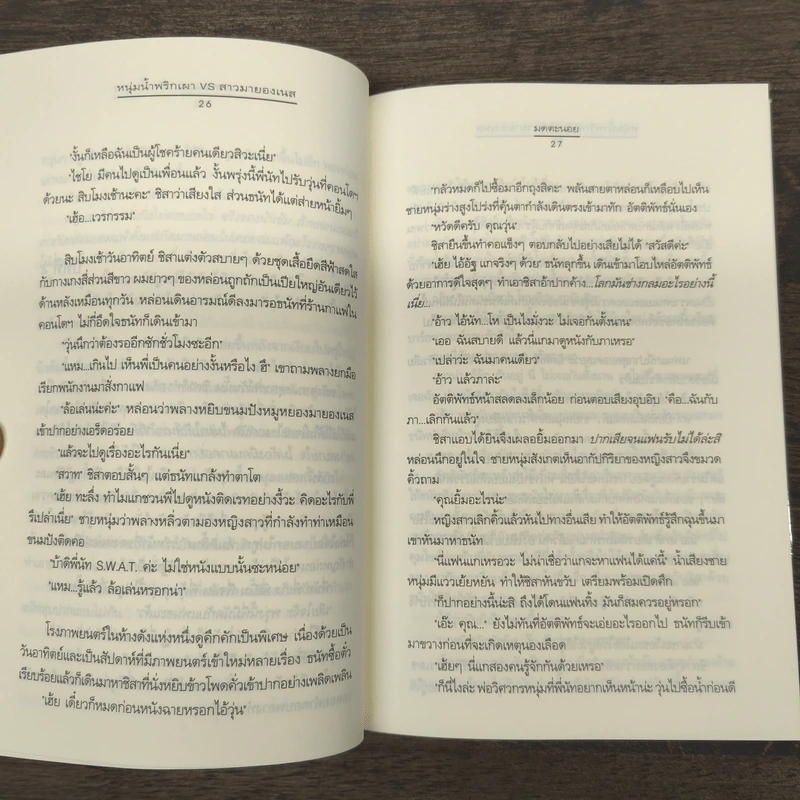 หนุ่มน้ำพริกเผา VS สาวมายองเนส
26
"งั้นก็เหลือฉันเป็นผู้โชคร้ายคนเดียวสิวะเนี่ย"
"ไชโย มีคนไปดูเป็นเพื่อนแล้ว งั้นพรุ่งนี้พี่นัทไปรับวุ่นที่คอนโดฯ
ด้วยนะ สิบโมงเช้านะคะ" ชิสาว่าเสียงใส ส่วนธนัทได้แต่ส่ายหน้ายิ้มๆ
"เฮ้อ...เวรกรรม"
สิบโมงเช้าวันอาทิตย์ ชิสาแต่งตัวสบายๆ ด้วยชุดเสื้อยืดสีฟ้าสดใส
กับกางเกงสี่ส่วนสีขาว ผมยาวๆ ของหล่อนถูกถักเป็นเปียใหญ่อันเดียวไว้
ด้านหลังเหมือนทุกวัน หล่อนเดินอารมณ์ดีลงมารอธนัทที่ร้านกาแฟใน
คอนโดฯ ไม่กี่อึดใจธนัทก็เดินเข้ามา
"วุ่นนึกว่าต้องรออีกซักชั่วโมงซะอีก"
"แหม...เกินไป เห็นพี่เป็นคนอย่างงั้นหรือไง ฮึ" เขาถามพลางยกมือ
เรียกพนักงานมาสั่งกาแฟ
"ล้อเล่นน่ะค่ะ" หล่อนว่าพลางหยิบขนมปังหมูหยองมายองเนส
เข้าปากอย่างเอร็ดอร่อย
"แล้วจะไปดูเรื่องอะไรกันเนี่ย"
"สวาท" ชิสาตอบสั้นๆ แต่ธนัทแกล้งทำตาโต
"เฮ้ย ทะลึ่ง ทำไมแกชวนพี่ไปดูหนังติดเรทอย่างงี้วะ คิดอะไรกับพี่
รึเปล่าเนี่ย" ชายหนุ่มว่าพลางหลิ่วตามองหญิงสาวที่กำลังทำท่าเหมือน
ขนมปังติดคอ
"บ้าดิพี่นัท S.W.A.T. ค่ะ ไม่ใช่หนังแบบนั้นซะหน่อย"
"แหม...รู้แล้ว ล้อเล่นหรอกน่า"
โรงภาพยนตร์ในห้างดังแห่งหนึ่งดูคึกคักเป็นพิเศษ เนื่องด้วยเป็น
วันอาทิตย์และเป็นสัปดาห์ที่มีภาพยนตร์เข้าใหม่หลายเรื่อง ธนัทซื้อตั๋ว
เรียบร้อยแล้วก็เดินมาหาชิสาที่นั่งหยิบข้าวโพดคั่วเข้าปากอย่างเพลิดเพลิน
"เฮ้ย เดี๋ยวก็หมดก่อนหนังฉายหรอกไอ้วุ่น"
มดตะนอย
27
"กลัวหมดก็ไปซื้อมาอีกถุงสิคะ" พลันสายตาหล่อนก็เหลือบไปเห็น
ชายหนุ่มร่างสูงโปร่งที่คุ้นตากำลังเดินตรงเข้ามาทัก อัตติพัทธ์นั่นเอง
"หวัดดีครับ คุณวุ่น"
ชิสายืนขึ้นทำคอแข็งๆ ตอบกลับไปอย่างเสียไม่ได้ "สวัสดีค่ะ"
"เฮ้ย ไอ้อัฐ แกจริงๆ ด้วย" ธนัทลุกขึ้น เดินเข้ามาโอบไหล่อัตติพัทธ์
ด้วยอาการดีใจสุดๆ ทำเอาชิสาอ้าปากค้าง...โลกมันช่างกลมอะไรอย่างนี้
เนี่ย...
"อ้าว ไอ้นัท...โห เป็นไงมั่งวะ ไม่เจอกันตั้งนาน"
"เออ ฉันสบายดี แล้วนี่แกมาดูหนังกับภาเหรอ"
"เปล่าว่ะ ฉันมาคนเดียว"
"อ้าว แล้วภาล่ะ"
อัตติพัทธ์หน้าสลดลงเล็กน้อย ก่อนตอบเสียงอุบอิบ "คือ...ฉันกับ
ภา...เลิกกันแล้ว"
ชิสาแอบได้ยินจึงเผลอยิ้มออกมา ปากเสียจนแฟนรับไม่ได้ล่ะสิ
หล่อนนึกอยู่ในใจ ชายหนุ่มสังเกตเห็นอากัปกิริยาของหญิงสาวจึงขมวด
คิ้วถาม
"คุณยิ้มอะไรน่ะ"
หญิงสาวเลิกคิ้วแล้วหันไปทางอื่นเสีย ทำให้อัตติพัทธ์รู้สึกฉุนขึ้นมา
เขาหันมาหาธนัท
"นี่แฟนแกเหรอวะ ไม่น่าเชื่อว่าแกจะหาแฟนได้แค่นี้" น้ำเสียงชาย
หนุ่มมีแววเย้ยหยัน ทำให้ชิสาหันขวับ เตรียมพร้อมเปิดศึก
"ก็ปากอย่างนี้น่ะสิ ถึงได้โดนแฟนทิ้ง มันก็สมควรอยู่หรอก"
"เอ๊ะ คุณ..." ยังไม่ทันที่อัตติพัทธ์จะเอ่ยอะไรออกไป ธนัทก็รีบเข้า
มาขวางก่อนที่จะเกิดเหตุนองเลือด
"เฮ้ยๆ นี่แกสองคนรู้จักกันด้วยเหรอ"
"ก็นี่ไงล่ะ พ่อวิศวกรหนุ่มที่พี่นัทอยากเห็นหน้าน่ะ วุ่นไปซื้อน้ำก่อนดี